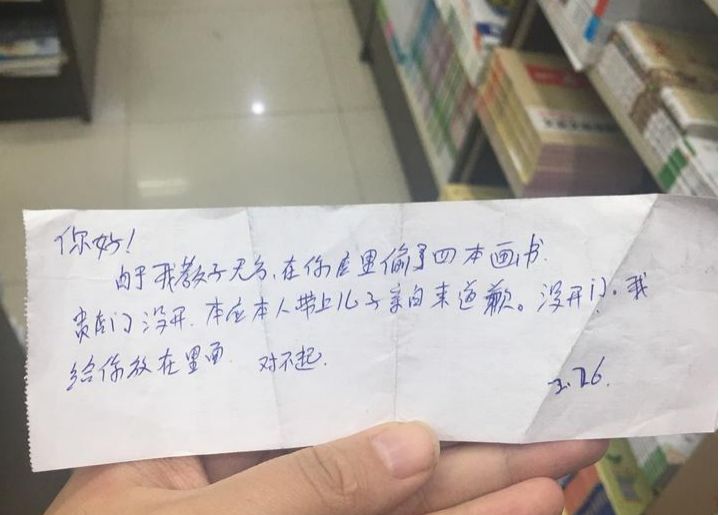 你好!
由于我教子无方,在你店里偷了四本画书.
贵店门没开.本应本人带上儿子亲自来道歉。没开门.我
给你放在里面 对不起.
3.26.